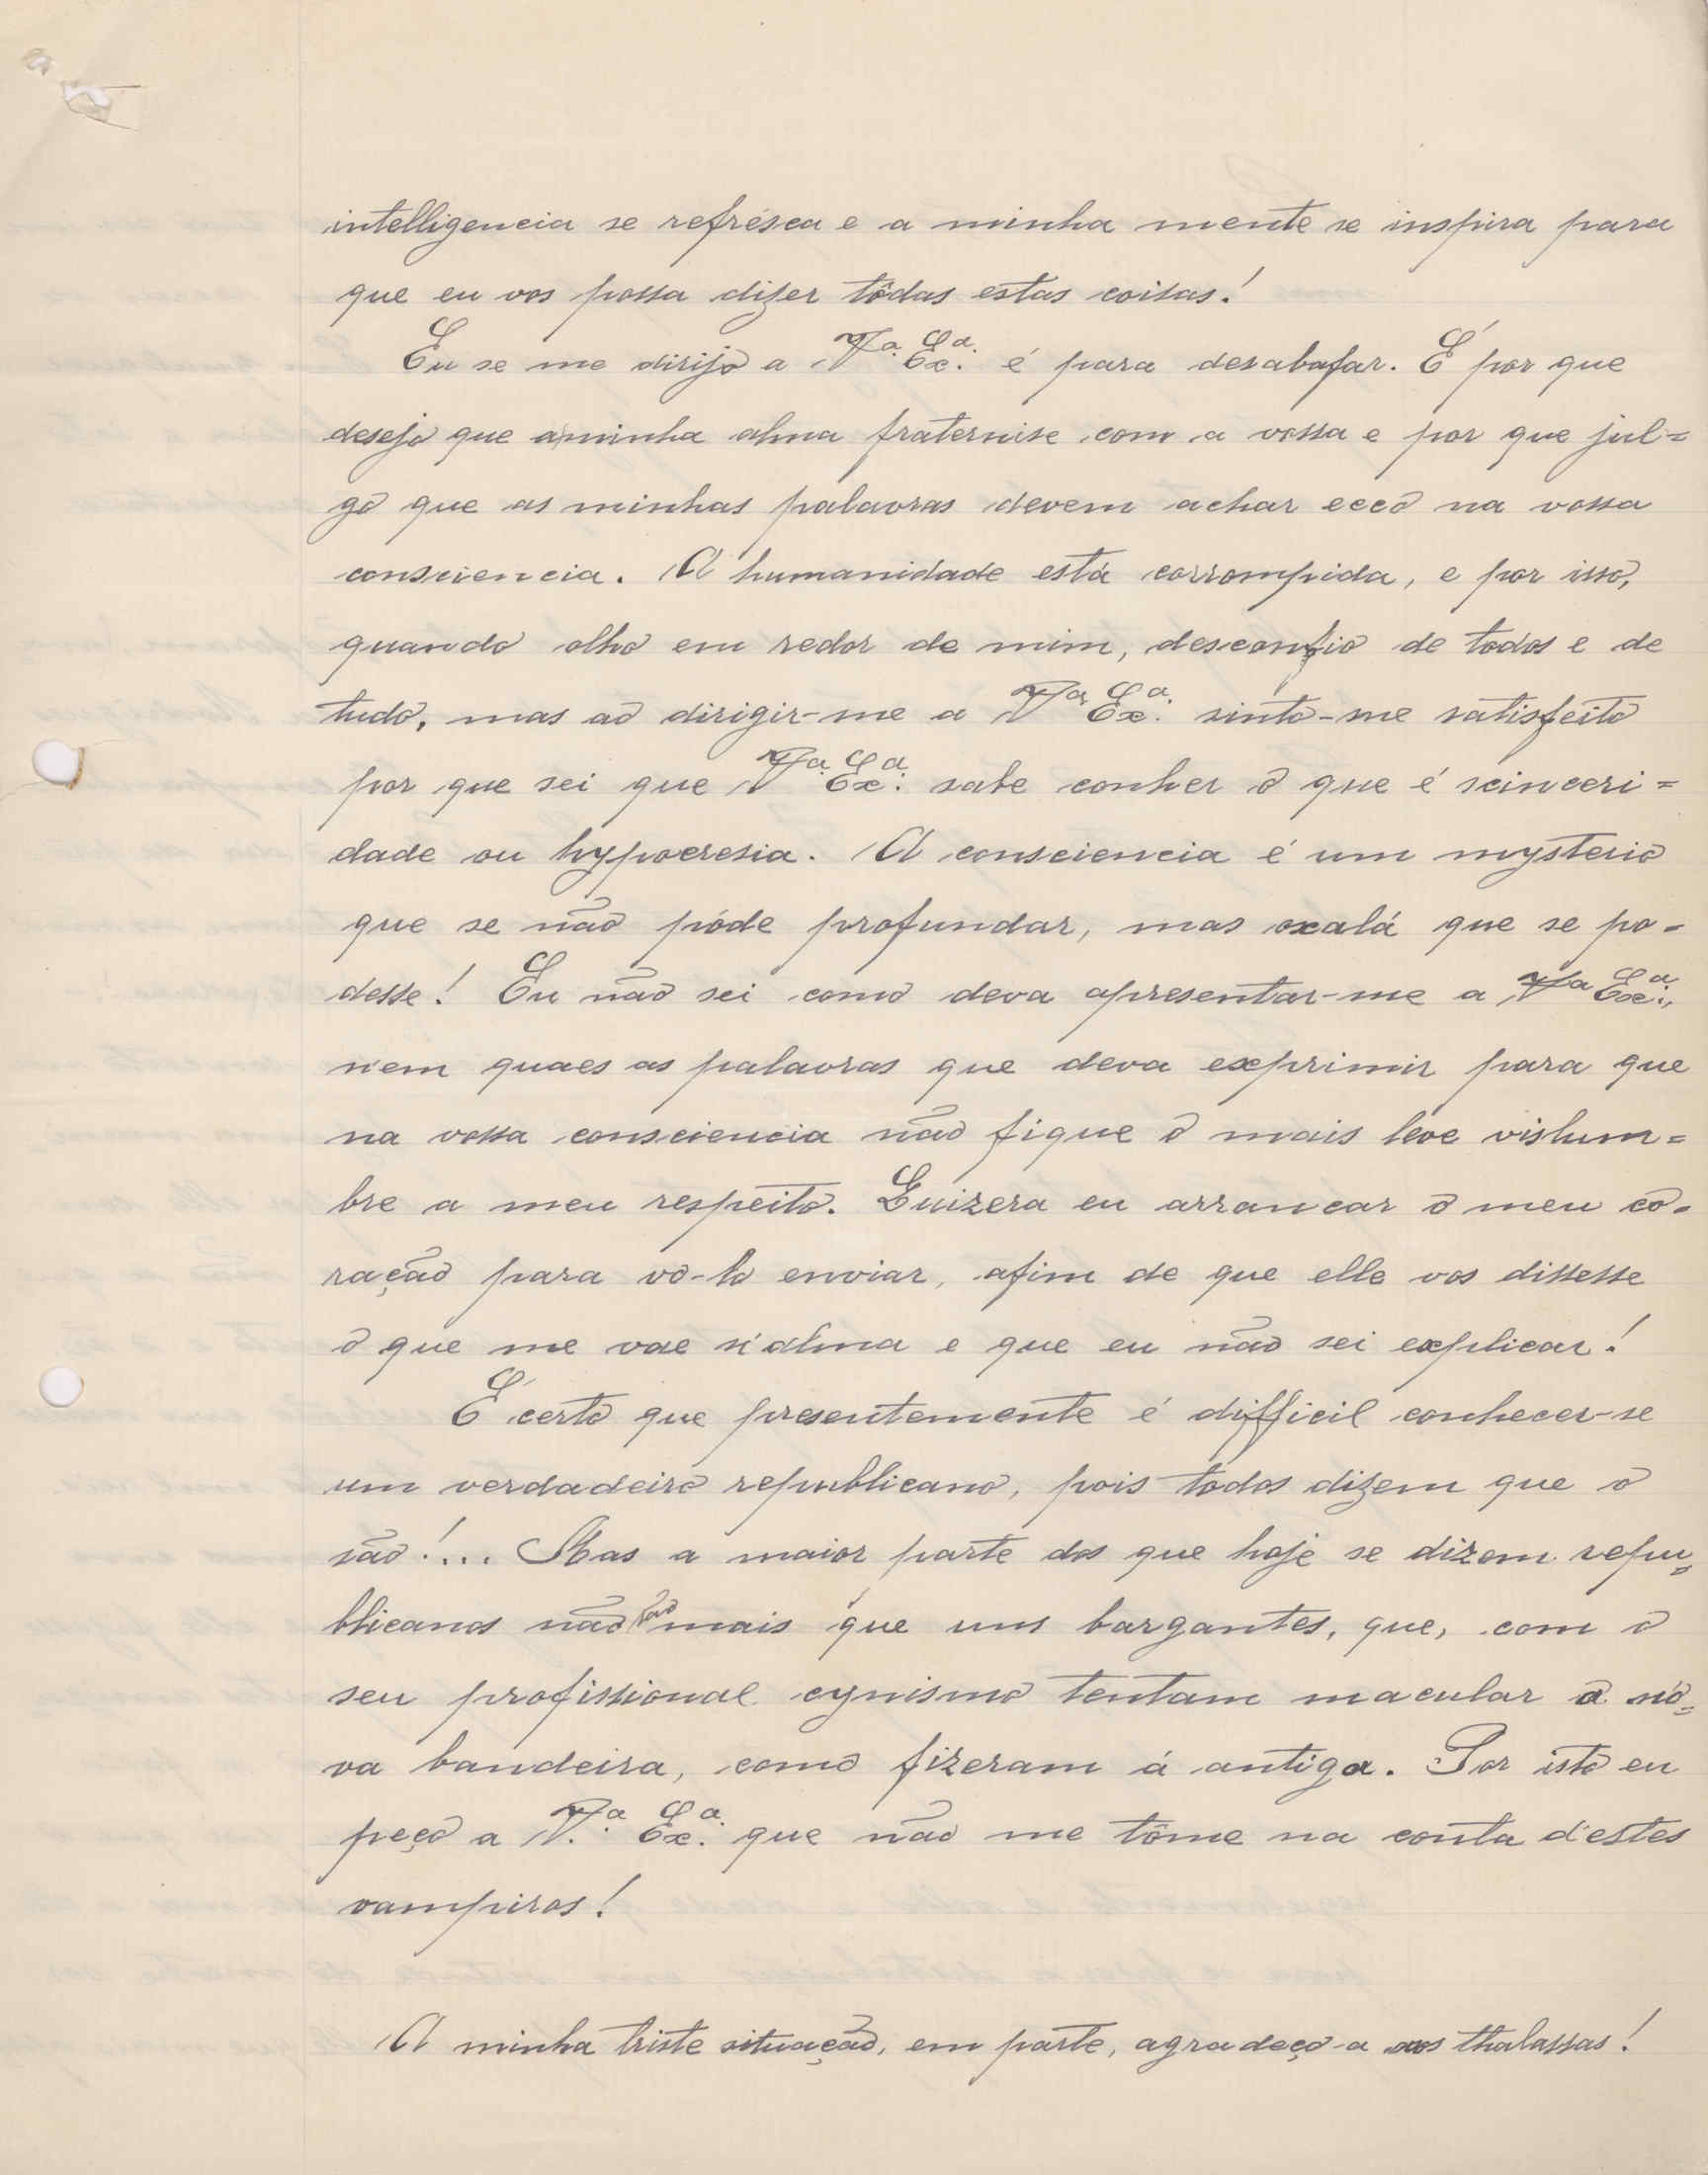 intelligencia se refrésca e a minha mente se inspira para
que eu vos possa dizer tôdas estas coisas!
Eu se me dirijo a V.ª Ex.ª é para desabafar. É por que
desejo que a minha alma fraternise com a vossa e por que jul=
go que as minhas palavras devem achar ecco na vossa
consciencia. A humanidade está corrompida, e por isso,
quando olho em redor de mim, desconfio de todos e de
tudo, mas ao dirigir-me a Vª Ex.ª sinto-me satisfeito
por que sei que V.ª Ex.ª sabe conher o que é scinceri=
dade ou hypocresia. A consciencia é um mysterio
que se não póde profundar, mas oxalá que se po-
desse! Eu não sei como deva apresentar-me a Vª Ex.ª,
nem quaes as palavras que deva exprimir para que
na vossa consciencia não fique o mais leve vislum=
bre a meu respeito. Quizera eu arrancar o meu co-
ração para vo-lo enviar, afim de que elle vos dissesse
o que me vae n'alma e que eu não sei explicar!
É certo que presentemente é difficil conhecer-se
um verdadeiro republicano, pois todos dizem que o
são!... Mas a maior parte dos que hoje se dizem repu=
blicanos não são mais que uns bargantes, que, com o
seu profissional cynismo tentam macular a nó=
va bandeira, como fizeram á antiga. Por isto eu
peço a V.ª Ex.ª que não me tôme na conta d'estes
vampiros!
A minha triste situação, em parte, agradeço-a aos thalassas!